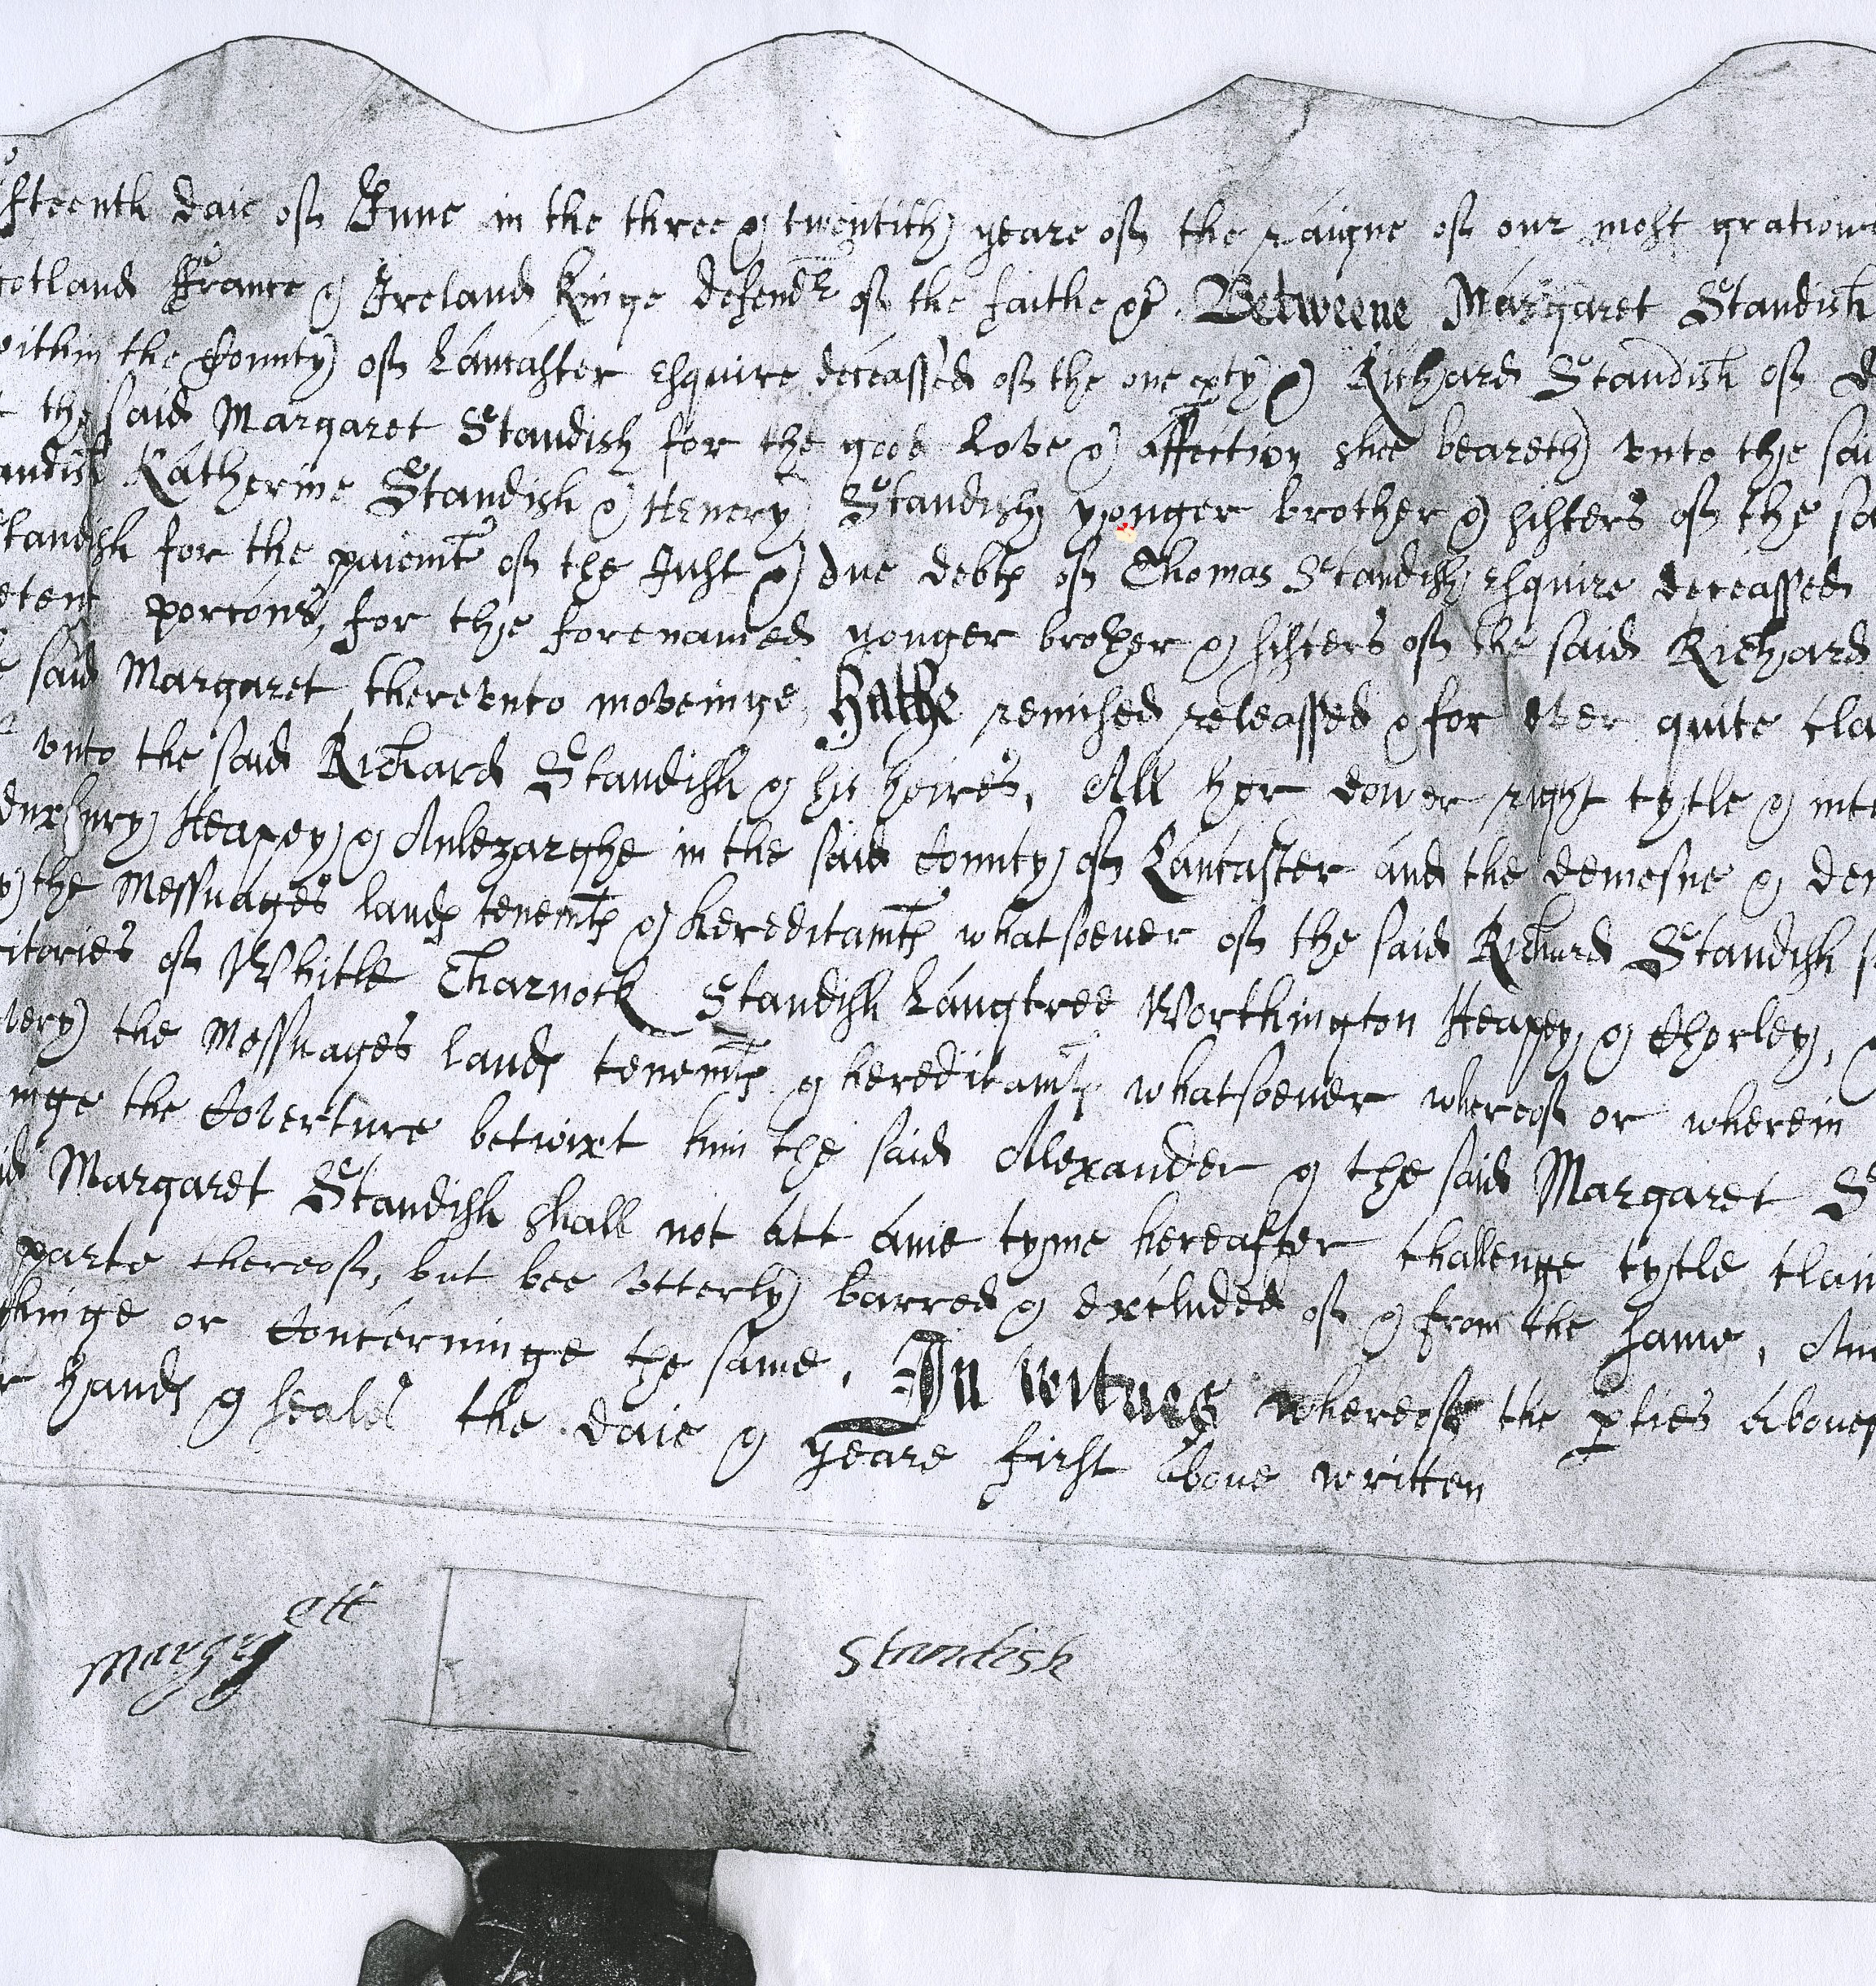 fteenth daie off June in the three & twentith yeare off the raigne off our most gratious
cotland ffrance & Ireland Kinge defendr off the faithe &c Betweene Margaret Standish
within the County off Lancaster esquire deceassed off the one pty & Richard Standish off D
the said Margaret Standish for the good Love & affection shee beareth vnto the sai
andish Katherine Standish & Henery Standish yonger brother & sisters off the sa
Standish for the paiemt off the Just & due debts off Thomas Standish esquire deceassed
etent porcons, for the forenamed yonger brother & sisters off the said Richard
said Margaret therevnto moveinge, Hathe remised releassed & for ever quite cla
vnto the said Richard Standish & his heires, All her dower right tytle & int
duxbury Heapey & Anlezarghe in the said County off Lancaster and the demesne & dem
the Messuages lands tenemts & hereditamts whatsoever off the said Richard Standish s
ritories off Whitle Charnock Standish Langtree Worthington Heapey & Chorley, &
very the Messuages lands tenemts & hereditamts whatsoever whereoff or wherein
inge the Coverture betwixt him the said Alexander & the said Margaret S
id Margaret Standish shall not att anie tyme hereafter challenge tytle clam
parte thereoff, but bee vtterly barred & excluded off & from the same, And
chinge or Concerninge the same. In witnes whereoff the pties aboves
r hands & seales the daie & yeare first above written
Margrett Standish